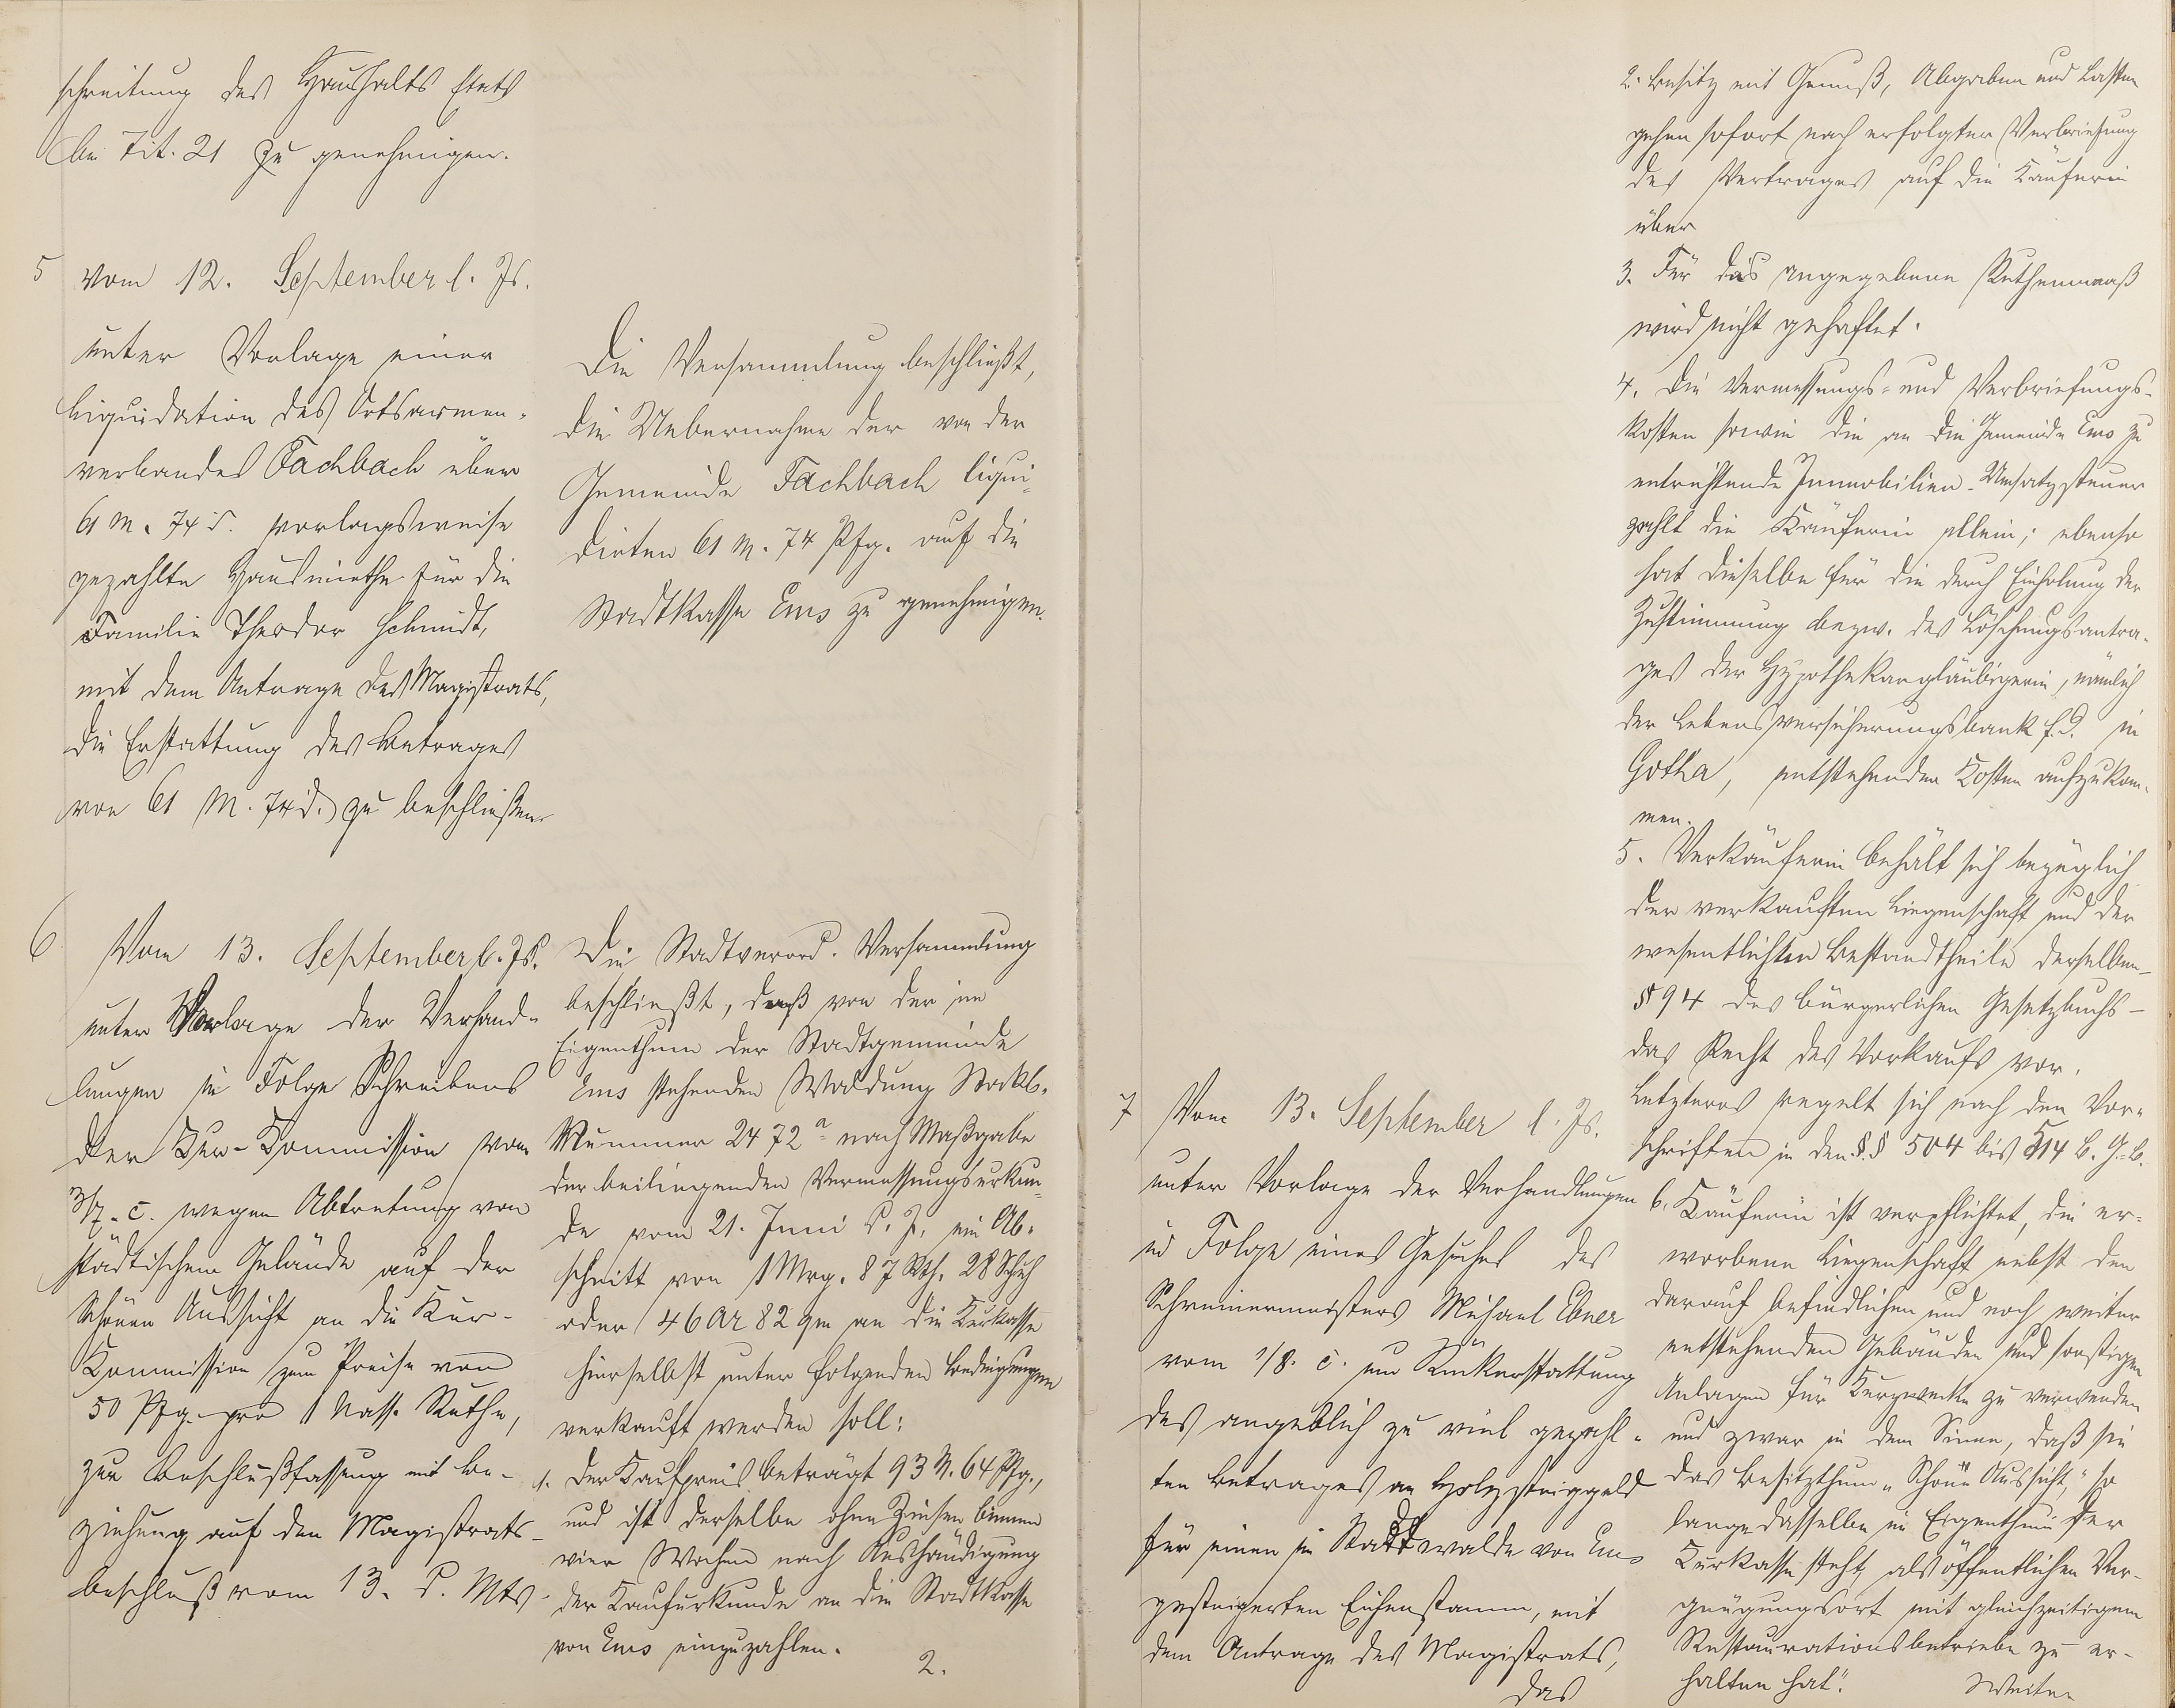 schreitung des Haushalts Etats
bei Tit. 21 zu genehmigen.
5 Vom 12. September l. Js.
unter Vorlage einer
Liquidation des Ortsarmen-
verbandes Fachbach über
61 M. 74 d. vorlagsweise
gezahlte Hausmiethe für die
Familie Theodor Schmidt,
mit dem Antrage des Magistrats,
die Erstattung des Betrages
von 61 M. 74 d. zu beschließen.
Die Versammlung beschließt,
die Uebernahme der von der
Gemeinde Fachbach liqui-
dirten 61 M. 74 Pfg. auf die
Stadtkasse Ems zu genehmigen.
6 Vom 13. September l. Js.
unter Vorlage der Verhand-
lungen in Folge Schreibens
der Kur-Kommission vom
3/7. c. wegen Abtretung von
städtischem Gelände auf der
Schönen Aussicht an die Kur-
Kommission zum Preise von
50 Pfg. pro 1 Nass. Ruthe,
zur Beschlußfassung mit Be-
ziehung auf den Magistrats-
beschluß vom 13. d. Mts.
Die Stadtverord. Versammlung
beschließt, daß von der im
Eigenthum der Stadtgemeinde
Ems stehenden Waldung Stockb.
Nummer 2472 a nach Maßgabe
der beiliegenden Vermessungsurkun-
de vom 21. Juni d. J. ein Ab-
schnitt von 1 Mrg. 87 Rth. 28 Schuh
oder 46 Ar 82 qm an die Kurkasse
hierselbst unter folgenden Bedingungen
verkauft werden soll:
1. Der Kaufpreis beträgt 93 M. 64 Pfg.,
und ist derselbe ohne Zinsen binnen
vier Wochen nach Aushändigung
der Kaufurkunde an die Stadtkasse
von Ems einzuzahlen.
2.
7 Vom 13. September l. Js.
unter Vorlage der Verhandlungen
in Folge eines Gesuches des
Schreinermeisters Michael Ebner
vom 1/8. c. um Rückerstattung
des angeblich zu viel gezahl-
ten Betrages an Holzsteiggeld
für einen im Stadtwalde von Ems
gesteigerten Eichenstamm, mit
dem Antrage des Magistrats,
das
2. Besitz mit Genuß, Abgaben und Lasten
gehen sofort nach erfolgter Verbriefung
des Vertrages auf die Käuferin
über
3. Für das angegebene Ruthenmaaß
wird nicht gehaftet.
4. Die Vermessungs- und Verbriefungs-
kosten sowie die an die Gemeinde Ems zu
entrichtende Immobilien-Umsatzsteuer
zahlt die Käuferin allein; ebenso
hat dieselbe für die durch Einholung der
Zustimmung bezw. des Löschungsantra-
ges der Hypothekargläubigerin, nämlich
der Lebensversicherungsbank f. D. in
Gotha, entstehenden Kosten aufzukom-
men.
5. Verkäuferin behält sich bezüglich
der verkauften Liegenschaft und der
wesentlichen Bestandtheile derselben –
§ 94 des bürgerlichen Gesetzbuchs –
das Recht des Vorkaufs vor.
Letzteres regelt sich nach den Vor-
schriften in den §.§ 504 bis 514 B. G.-B.
6. Käuferin ist verpflichtet, die er-
worbene Liegenschaft nebst den
darauf befindlichen und noch weiter
entstehenden Gebäuden und sonstigen
Anlagen für Kurzwecke zu verwenden
und zwar in dem Sinne, daß sie
das Besitzthum „Schöne Aussicht," so
lange dasselbe im Eigenthum der
Kurkasse steht, als öffentlichen Ver-
gnügungsort mit gleichzeitigem
Restaurationsbetriebe zu er-
halten hat."
Weiter